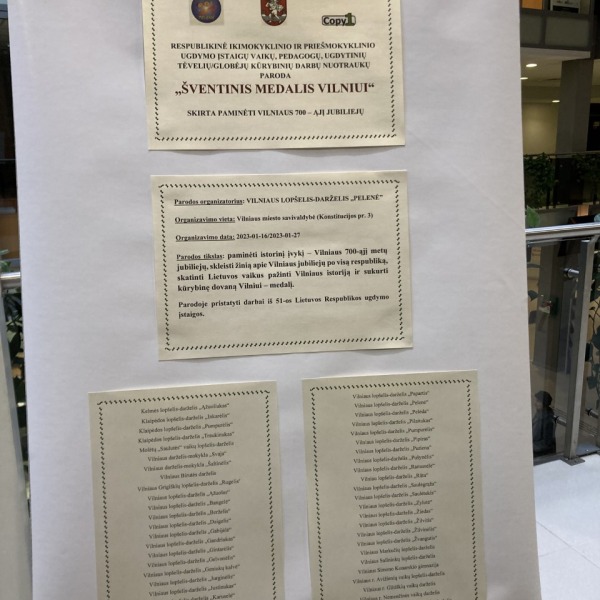 Copy1
RESPUBLIKINĖ IKIMOKYKLINIO IR PRIEŠMOKYKLINIO
UGDYMO ĮSTAIGŲ VAIKŲ, PEDAGOGŲ, UGDYTINIŲ
TĖVELIŲ/GLOBĖJŲ KŪRYBINIŲ DARBŲ NUOTRAUKŲ
PARODA
„ŠVENTINIS MEDALIS VILNIUI“
SKIRTA PAMINĖTI VILNIAUS 700 – ĄJĮ JUBILIEJŲ
Parodos organizatorius: VILNIAUS LOPŠELIS-DARŽELIS „PELENĖ“
Organizavimo vieta: Vilniaus miesto savivaldybė (Konstitucijos pr. 3)
Organizavimo data: 2023-01-16/2023-01-27
Parodos tikslas: paminėti istorinį įvykį – Vilniaus 700-ąjį metų
jubiliejų, skleisti žinią apie Vilniaus jubiliejų po visą respubliką,
skatinti Lietuvos vaikus pažinti Vilniaus istoriją ir sukurti
kūrybinę dovaną Vilniui – medalį.
Parodoje pristatyti darbai iš 51-os Lietuvos Respublikos ugdymo
įstaigos.
Kelmės lopšelis-darželis „Ąžuoliukas“
Klaipėdos lopšelis-darželis „Inkarėlis“
Klaipėdos lopšelis-darželis „Pumpurėlis“
Klaipėdos lopšelis-darželis „Traukinukas“
Molėtų „Saulutės“ vaikų lopšelis-darželis
Vilniaus darželis-mokykla „Svaja“
Vilniaus darželis-mokykla „Šaltinėlis“
Vilniaus Birutės darželis
Vilniaus Grigiškių lopšelis-darželis „Rugelis“
Vilniaus lopšelis-darželis „Aitvaras“
Vilniaus lopšelis-darželis „Bangelė“
Vilniaus lopšelis-darželis „Berželis“
Vilniaus lopšelis-darželis „Daigelis“
Vilniaus lopšelis-darželis „Gabijėlė“
Vilniaus lopšelis-darželis „Gandriukas“
Vilniaus lopšelis-darželis „Gintarėlis“
Vilniaus lopšelis-darželis
Vilniaus lopšelis-darželis „Geniu
Vilniaus lopšelis-darželis „Jurginėlis“
Vilniaus lopšelis-darželis „Justinukas“
Vilniaus lopšelis-darželis
Vilniaus lopšelis-darželis „Papartis“
Vilniaus lopšelis-darželis „Pelenė“
Vilniaus lopšelis-darželis „Pelėda“
Vilniaus lopšelis-darželis „Pilaitukas“
Vilniaus lopšelis-darželis „Pumpurėlis“
Vilniaus lopšelis-darželis „Pipiras“
Vilniaus lopšelis-darželis „Pušaitė“
Vilniaus lopšelis-darželis
Vilniaus lopšelis-darželis „Ramunėlė“
Vilniaus lopšelis-darželis „Rūta“
Vilniaus lopšelis-darželis „Saulėgrąža“
Vilniaus lopšelis-darželis „Saulėtekis“
Vilniaus lopšelis-darželis
Vilniaus lopšelis-darželis „Žiedas“
Vilniaus lopšelis-darželis „Žilvitis“
Vilniaus lopšelis-darželis
Vilniaus lopšelis-darželis „Žvangutis“
Vilniaus Markučių lopšelis-darželis
Vilniaus lopšelis-darželis
Vilniaus Simono Konarskio gimnazija
Vilniaus r. Avižienių vaikų lopšelis-darželis
Vilniaus r. Glitiškių vaikų darželis
Vilniaus r. Nemenčinės vaikų darželis